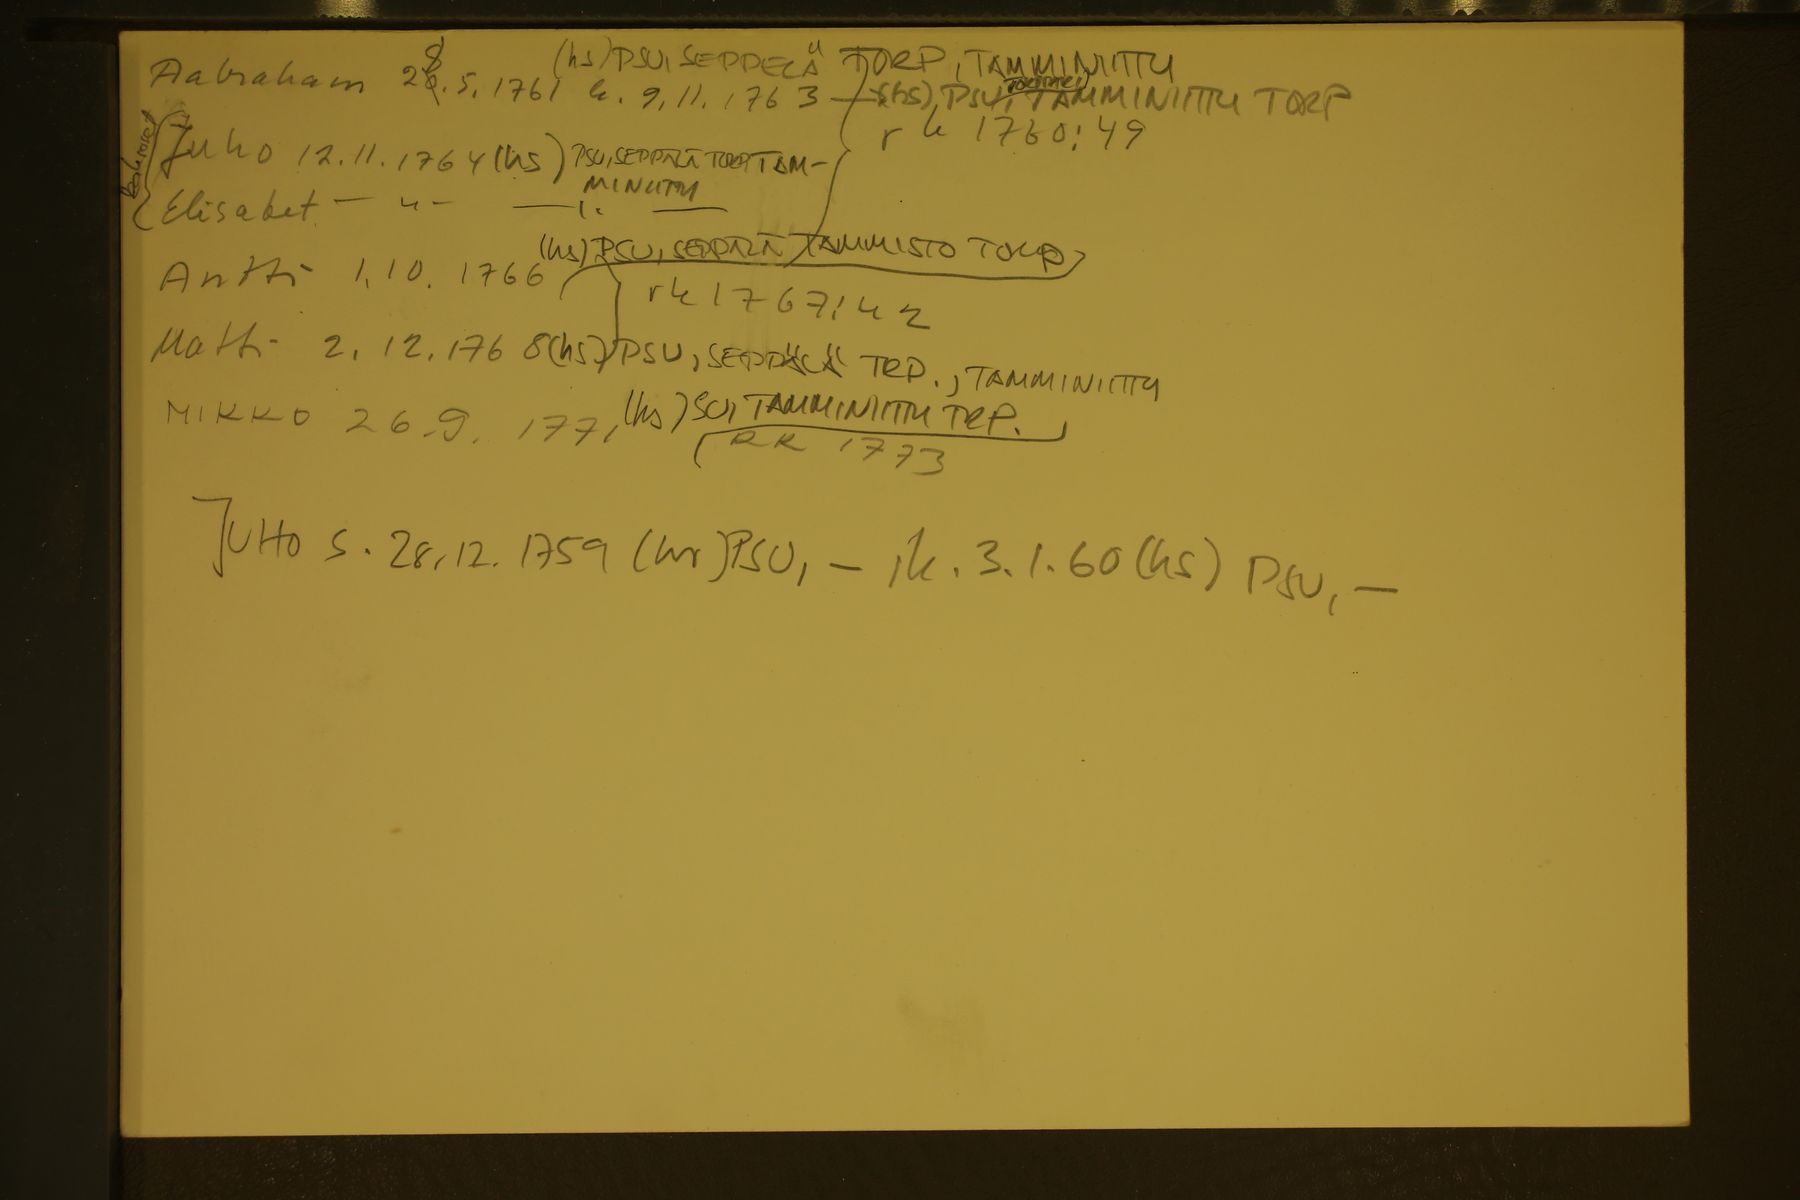 Aabraham 28.5.1761 (hs) PSU, SEPPELÄ TORP, TAMMINIITTU
k. 9.11.1763 — (hs), PSU, TAMMINIITTU TORP
rk 1760:49
Kaksoset
Juho 12.11.1764 (hs) PSU, SEPPÄLÄ TORP TAM-
MINIITTU
Elisabet — " — — " —
Antti 1.10.1766 (hs) PSU, SEPPÄLÄ TAMMISTO TORP
rk 1767:42
Matti 2.12.1768 (hs) PSU, SEPPÄLÄ TRP., TAMMINIITTU
MIKKO 26.9.1771 (hs) SU, TAMMINIITTU TRP.
RK 1773
JUHO S. 28.12.1759 (hs) PSU, — , k. 3.1.60 (hs) PSU, —